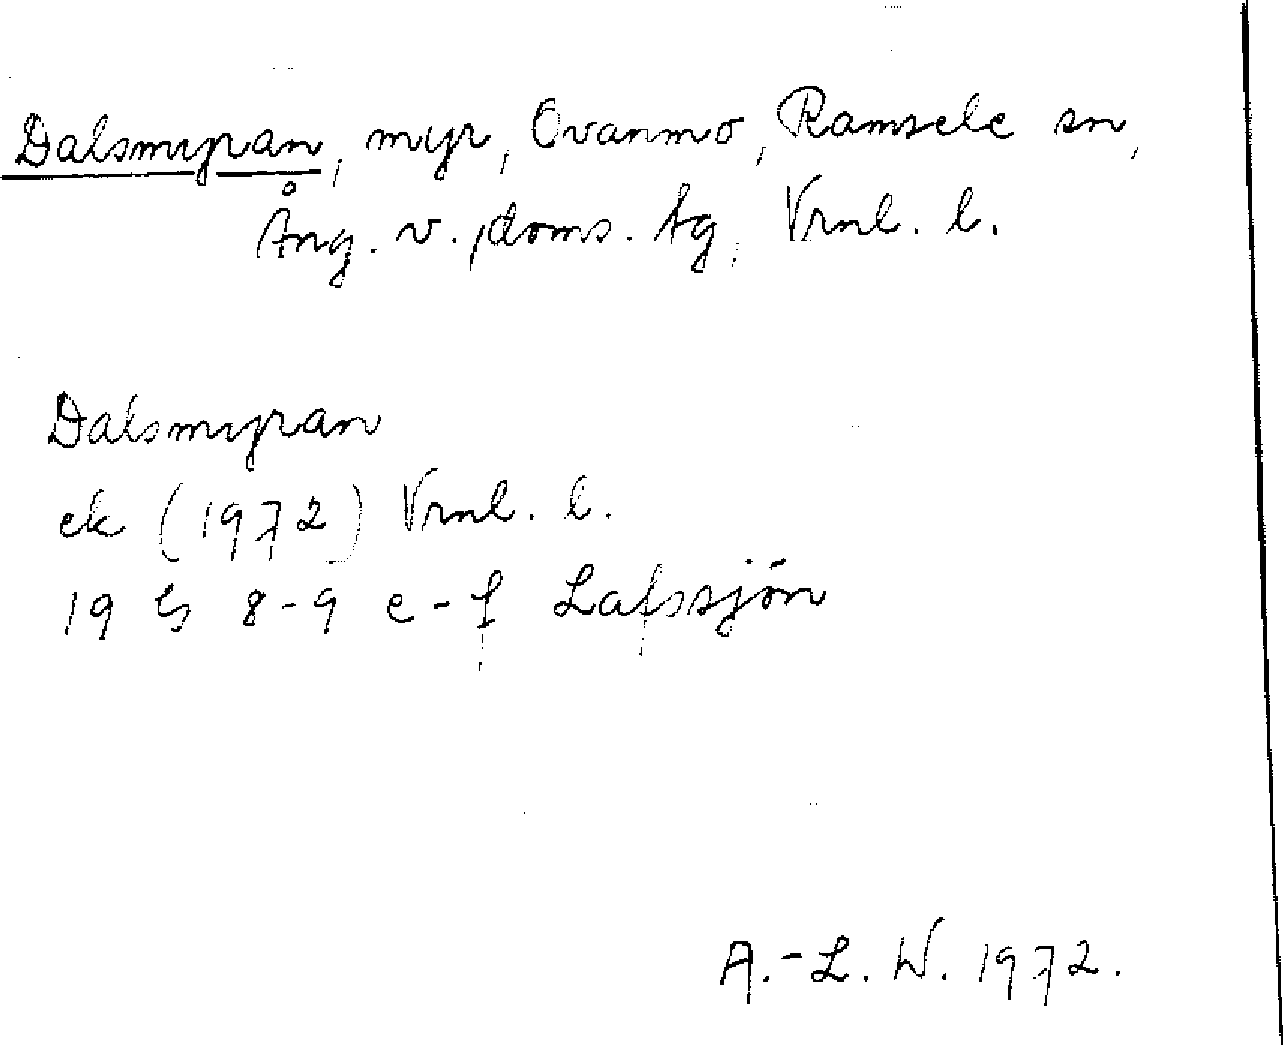 Dalsmyran, myr, Ovanmo, Ramsele sn,
Ång. v., doms. lg, Vrnl. l.
Dalsmyran
ek (1972) Vrnl. l.
19 G 8-9 e-f Lafssjön
A.-L. W. 1972.